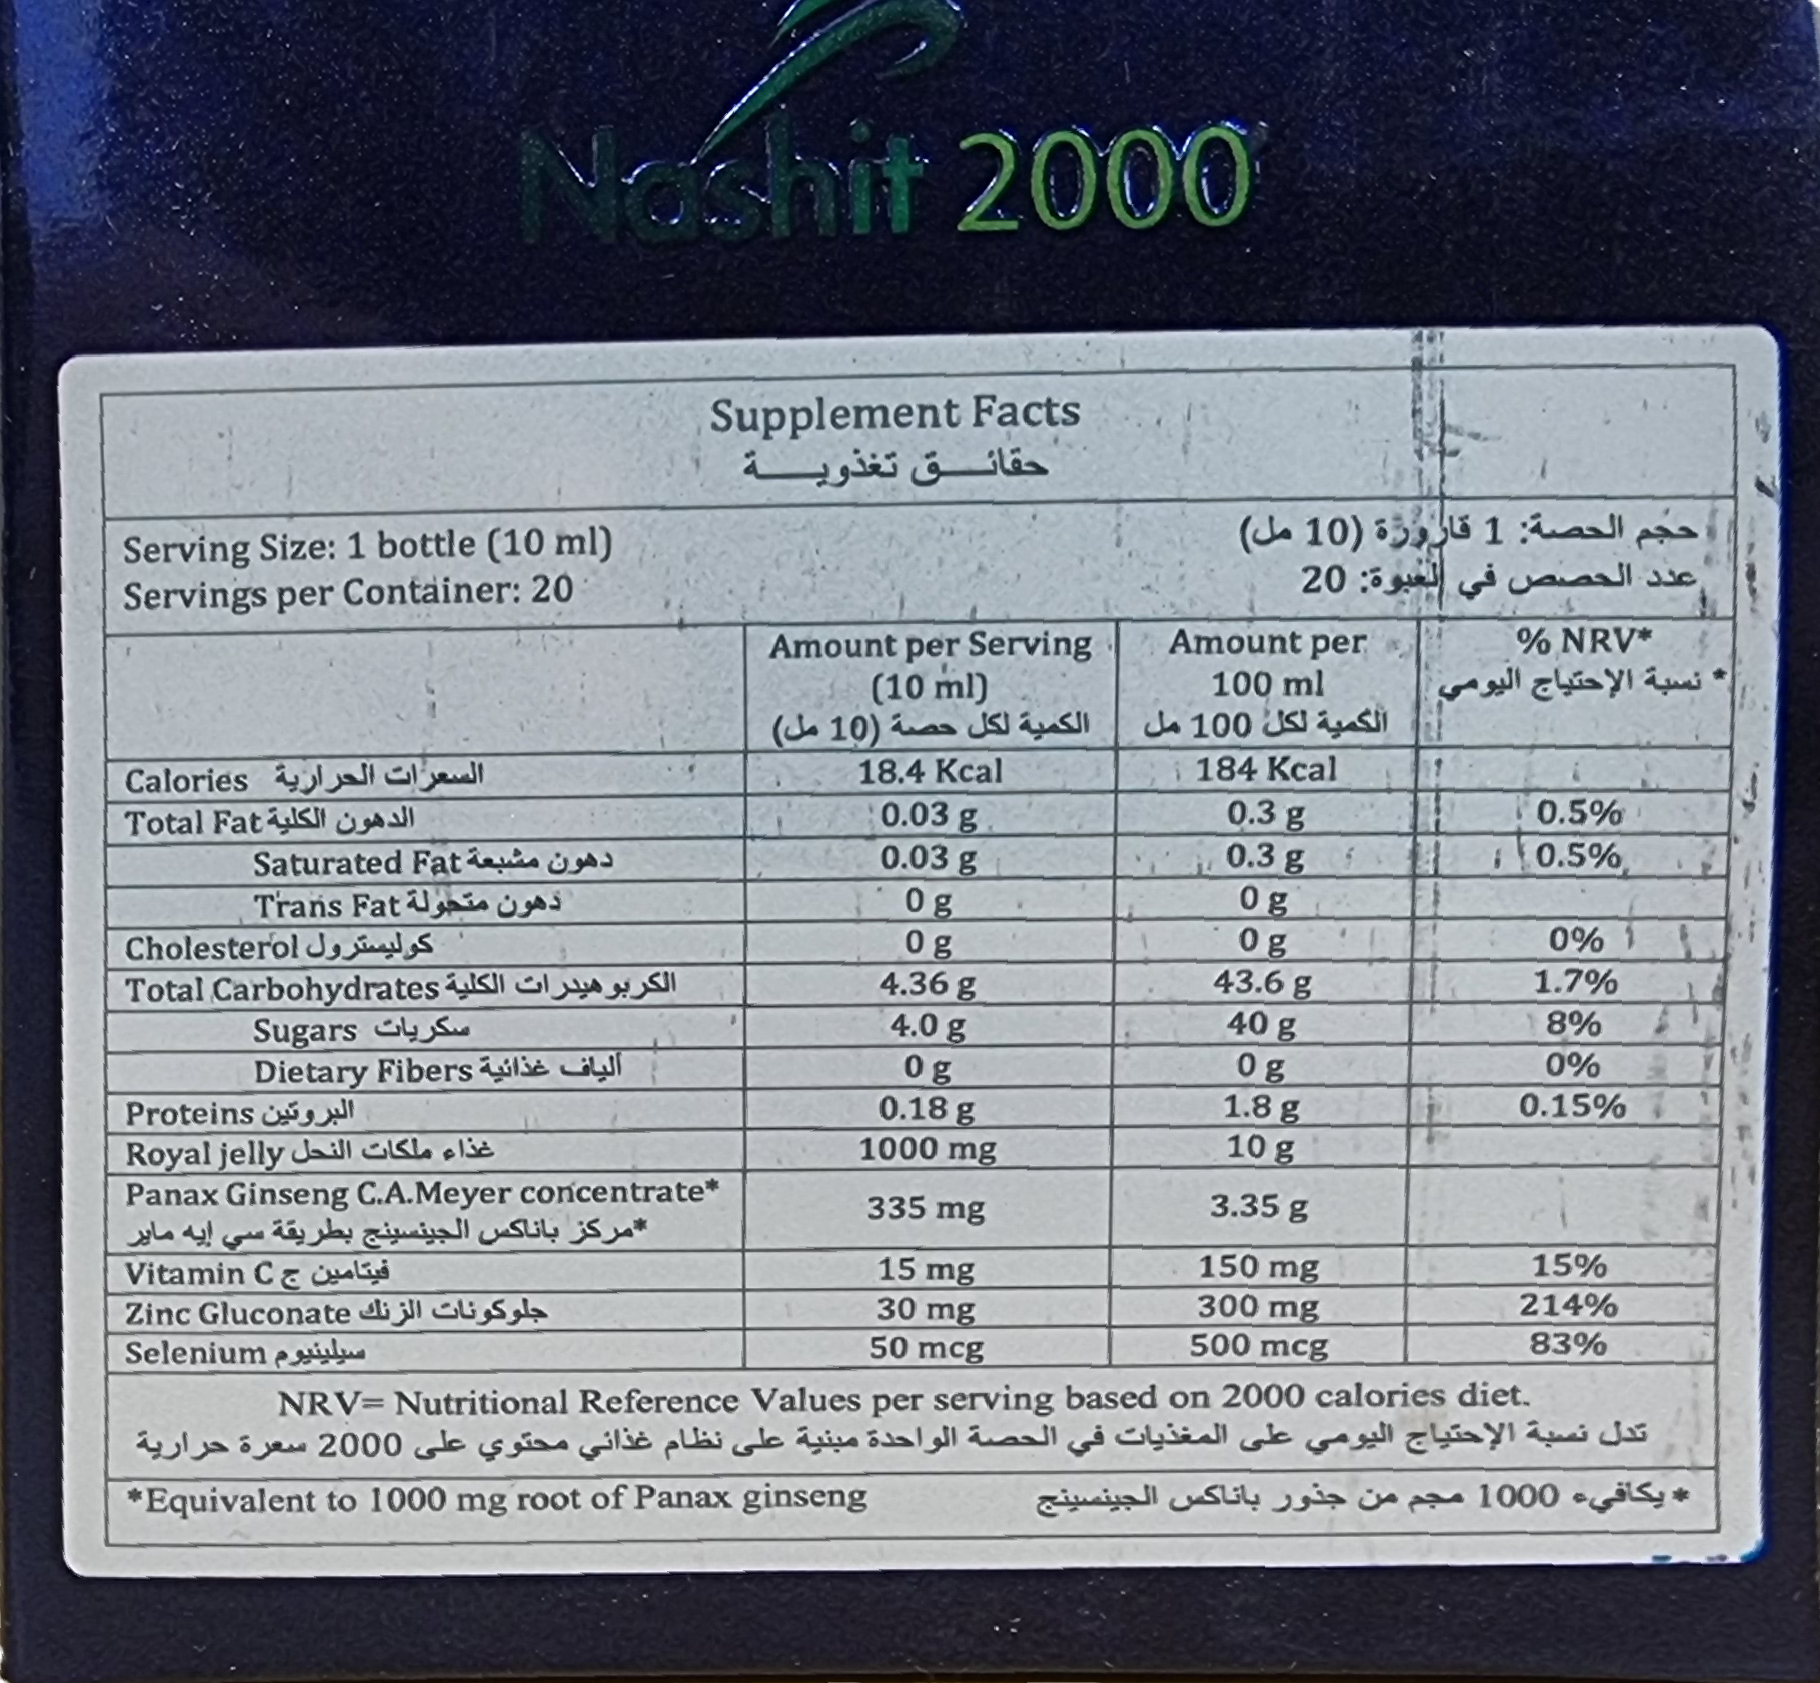 Nashit 2000
Supplement Facts
حقائق تغذوية
Serving Size: 1 bottle (10 ml) حجم الحصة: 1 قارورة (10 مل)
Servings per Container: 20 عدد الحصص في العبوة: 20
Amount per Serving Amount per % NRV*
(10 ml) 100 ml * نسبة الإحتياج اليومي
الكمية لكل حصة (10 مل) الكمية لكل 100 مل
Calories السعرات الحرارية 18.4 Kcal 184 Kcal
Total Fat الدهون الكلية 0.03 g 0.3 g 0.5%
Saturated Fat دهون مشبعة 0.03 g 0.3 g 0.5%
Trans Fat دهون متحولة 0 g 0 g
Cholesterol كوليسترول 0 g 0 g 0%
Total Carbohydrates الكربوهيدرات الكلية 4.36 g 43.6 g 1.7%
Sugars سكريات 4.0 g 40 g 8%
Dietary Fibers ألياف غذائية 0 g 0 g 0%
Proteins البروتين 0.18 g 1.8 g 0.15%
Royal jelly غذاء ملكات النحل 1000 mg 10 g
Panax Ginseng C.A.Meyer concentrate* 335 mg 3.35 g
*مركز باناكس الجينسينج بطريقة سي إيه ماير
Vitamin C فيتامين ج 15 mg 150 mg 15%
Zinc Gluconate جلوكونات الزنك 30 mg 300 mg 214%
Selenium سيلينيوم 50 mcg 500 mcg 83%
NRV= Nutritional Reference Values per serving based on 2000 calories diet.
تدل نسبة الإحتياج اليومي على المغذيات في الحصة الواحدة مبنية على نظام غذائي محتوي على 2000 سعرة حرارية
*Equivalent to 1000 mg root of Panax ginseng * يكافيء 1000 مجم من جذور باناكس الجينسينج